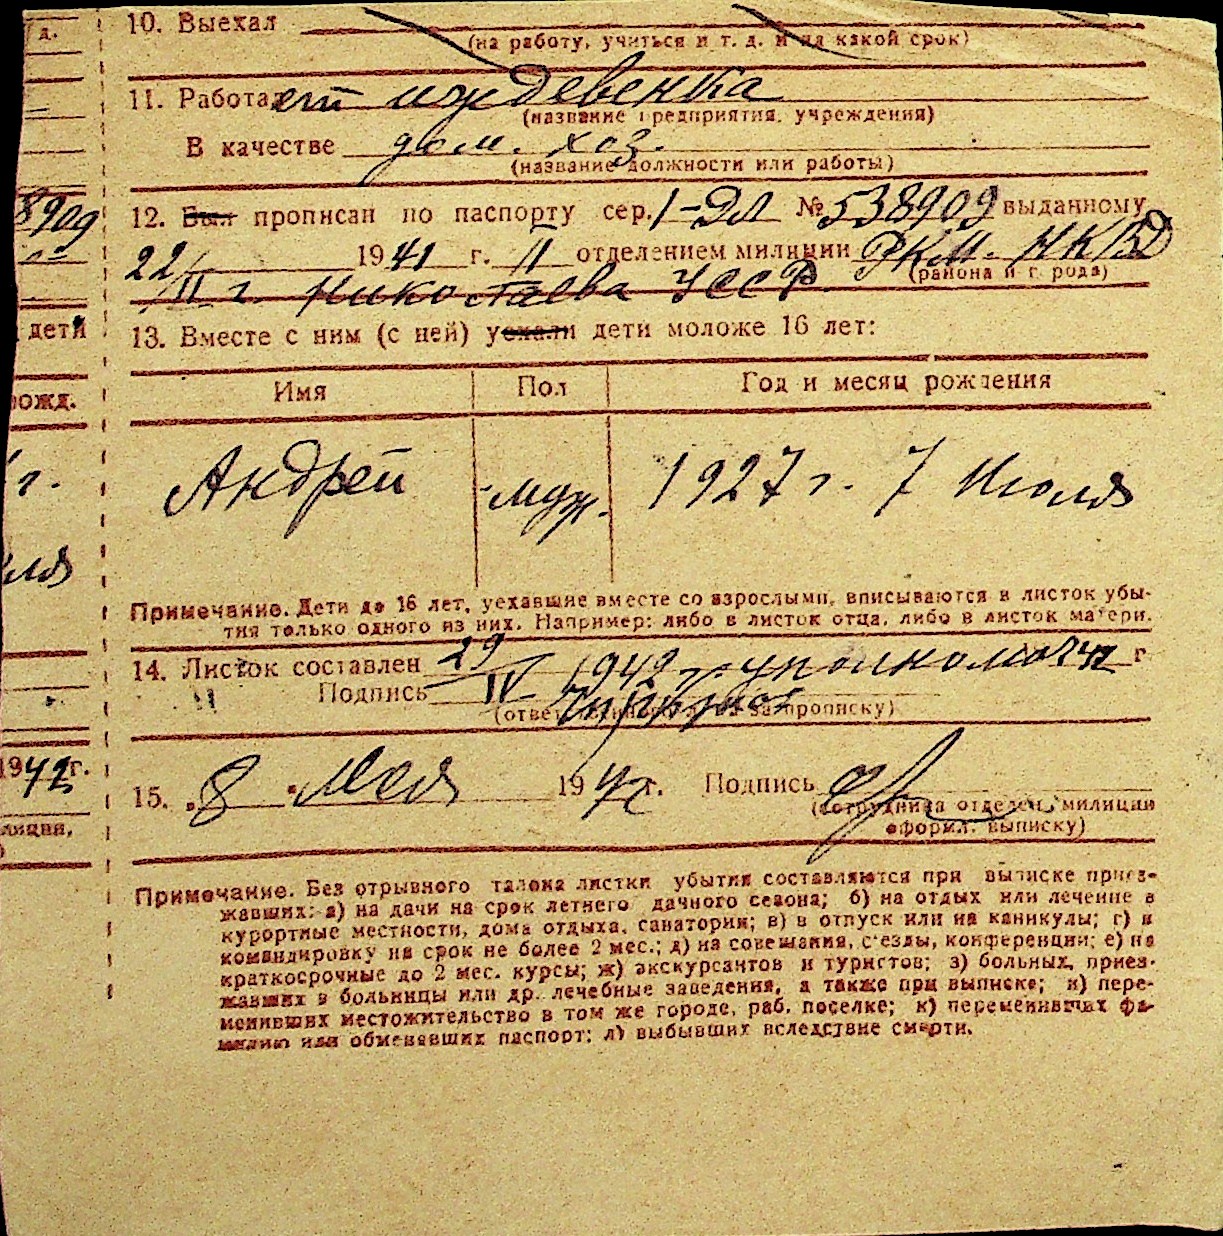 д.
10. Выехал
(на работу, учиться и т. д. и на какой срок)
11. Работает иждевенка
(название предприятия, учреждения)
В качестве дом. хоз.
(название должности или работы)
8909
12. Был прописан по паспорту сер. 1-ЭЛ № 538909 выданному
22/II 1941 г. II отделением милиции РКМ. НКВД
(района и г рода)
г. Николаева УССР
дети
13. Вместе с ним (с ней) уехали дети моложе 16 лет:
рожд.
Имя Пол Год и месяц рождения
г.
Андрей муж. 1927 г. 7 Июля
Примечание. Дети до 16 лет, уехавшие вместе со взрослыми, вписываются в листок убы-
тия только одного из них. Например: либо в листок отца, либо в листок матери.
14. Листок составлен 29/IV 1942 г. г
Подпись
1942 г.
15. „8 " Мая 1942 г. Подпись
(сотрудника отделен. милиции
оформл. выписку)
Примечание. Без отрывного талона листки убытия составляются при выписке приез-
жавших: а) на дачи на срок летнего дачного сезона; б) на отдых или лечение в
курортные местности, дома отдыха, санатории; в) в отпуск или на каникулы; г) в
командировку на срок не более 2 мес.; д) на совещания, с'езды, конференции; е) на
краткосрочные до 2 мес. курсы; ж) экскурсантов и туристов; з) больных, приез-
жавших в больницы или др. лечебные заведения, а также при выписке; и) пере-
менивших местожительство в том же городе, раб. поселке; к) переменивших фа-
милию или обменявших паспорт; л) выбывших вследствие смерти.